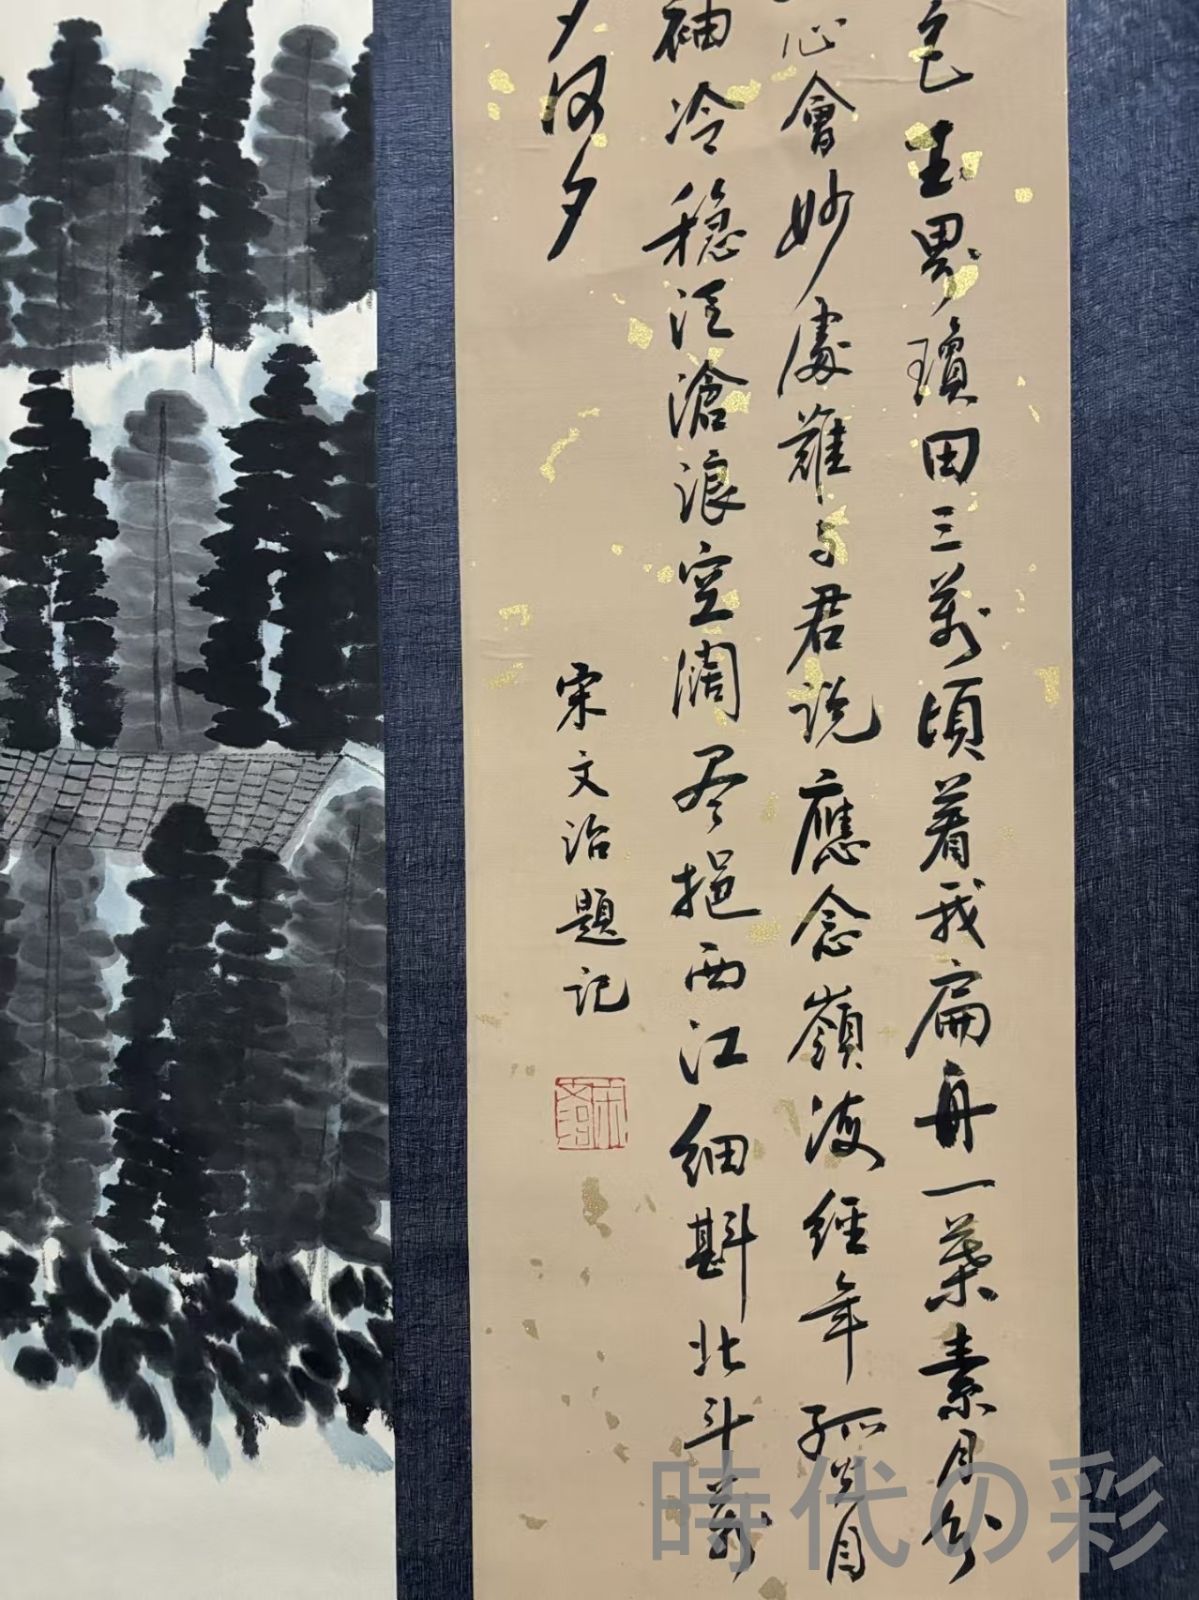 色玉界瓊田三萬頃着我扁舟一葉素月分
心會妙處難与君説應念嶺海經年孤光自
袖冷稳泛滄浪空闊尽挹西江細斟北斗萬
夕何夕
宋文治題記
時代の彩